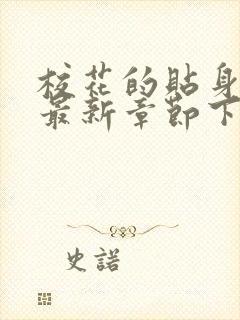 校花的貼身
最新章節下
史諾